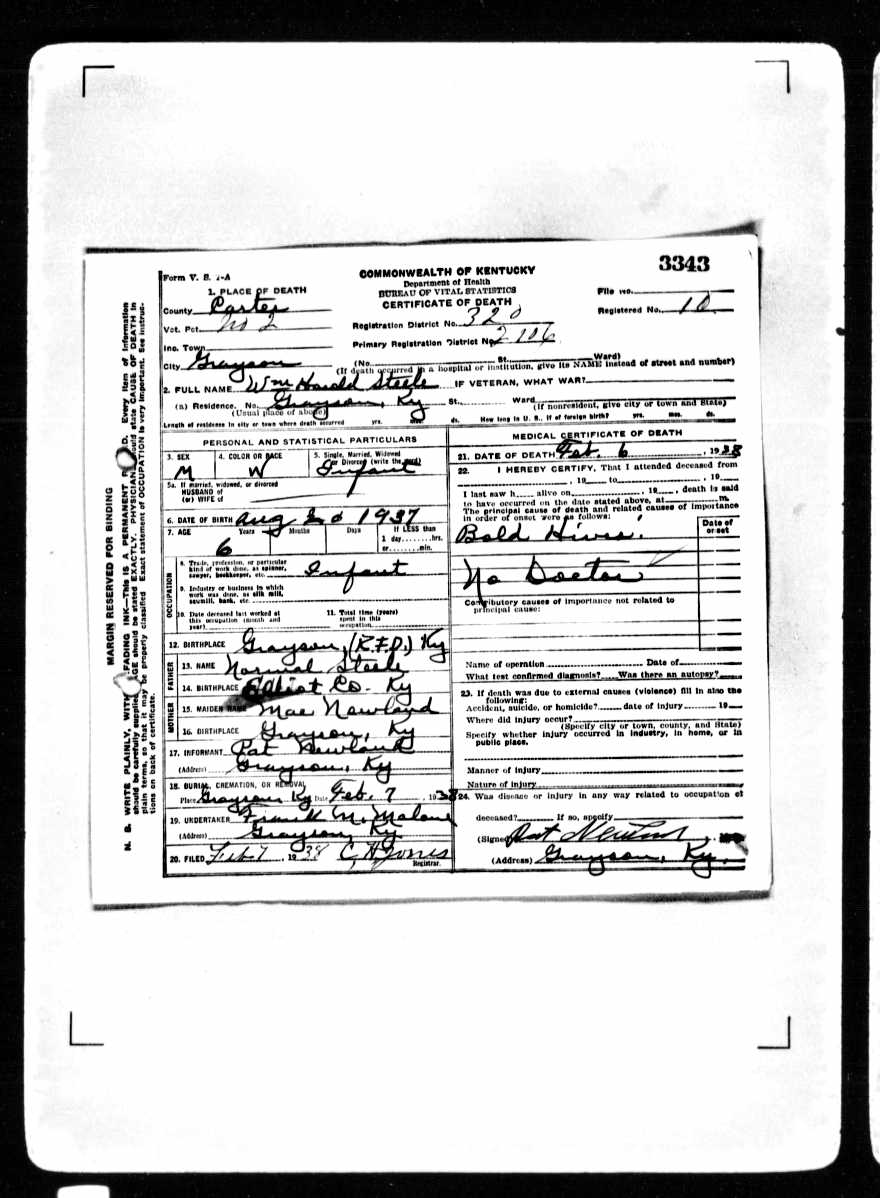 3343
Form V. S. 1-A
COMMONWEALTH OF KENTUCKY
Department of Health
BUREAU OF VITAL STATISTICS
CERTIFICATE OF DEATH
File No.
Registered No. 10
1. PLACE OF DEATH
County Carter
Vot. Pct. No 2
Inc. Town
City Grayson
Registration District No. 320
Primary Registration District No. 2106
(No. St. Ward)
(If death occurred in a hospital or institution, give its NAME instead of street and number)
2. FULL NAME Wm Harold Steele IF VETERAN, WHAT WAR?
(a) Residence. No. Grayson, Ky St. Ward
(Usual place of abode) (If nonresident, give city or town and State)
Length of residence in city or town where death occurred yrs. mos. ds. How long in U. S., if of foreign birth? yrs. mos. ds.
PERSONAL AND STATISTICAL PARTICULARS
3. SEX M
4. COLOR OR RACE W
5. Single, Married, Widowed or Divorced (write the word) Infant
5a. If married, widowed, or divorced
HUSBAND of
(or) WIFE of
6. DATE OF BIRTH Aug 1937
7. AGE Years Months Days If LESS than
1 day,........hrs.
or........min.
6
OCCUPATION
8. Trade, profession, or particular
kind of work done, as spinner,
sawyer, bookkeeper, etc. Infant
9. Industry or business in which
work was done, as silk mill,
sawmill, bank, etc.
10. Date deceased last worked at
this occupation (month and
year)
11. Total time (years)
spent in this
occupation
12. BIRTHPLACE Grayson, (R.F.D.) Ky
FATHER
13. NAME Normal Steele
14. BIRTHPLACE Elliot Co. Ky
MOTHER
15. MAIDEN NAME Mae Newland
16. BIRTHPLACE Grayson, Ky
17. INFORMANT Pat Newland
(Address) Grayson, Ky
18. BURIAL, CREMATION, OR REMOVAL
Place Grayson Ky Date Feb. 7, 1938
19. UNDERTAKER Frank M. Malone
(Address) Grayson, Ky
20. FILED Feb 7, 1938 C H Jones
Registrar.
MEDICAL CERTIFICATE OF DEATH
21. DATE OF DEATH Feb. 6, 1938
22. I HEREBY CERTIFY, That I attended deceased from
, 19 to , 19
I last saw h alive on , 19 , death is said
to have occurred on the date stated above, at m.
The principal cause of death and related causes of importance
in order of onset were as follows:
Date of
onset
Bold Hives
No Doctor
Contributory causes of importance not related to
principal cause:
Name of operation Date of
What test confirmed diagnosis? Was there an autopsy?
23. If death was due to external causes (violence) fill in also the
following:
Accident, suicide, or homicide? date of injury 19
Where did injury occur?
(Specify city or town, county, and State)
Specify whether injury occurred in industry, in home, or in
public place.
Manner of injury
Nature of injury
24. Was disease or injury in any way related to occupation of
deceased? If so, specify
(Signed) Pat Newland
(Address) Grayson, Ky.
MARGIN RESERVED FOR BINDING
N. B. WRITE PLAINLY, WITH UNFADING INK—This is A PERMANENT RECORD. Every item of information
should be carefully supplied. AGE should be stated EXACTLY. PHYSICIANS should state CAUSE OF DEATH in
plain terms, so that it may be properly classified. Exact statement of OCCUPATION is very important. See instruc-
tions on back of certificate.